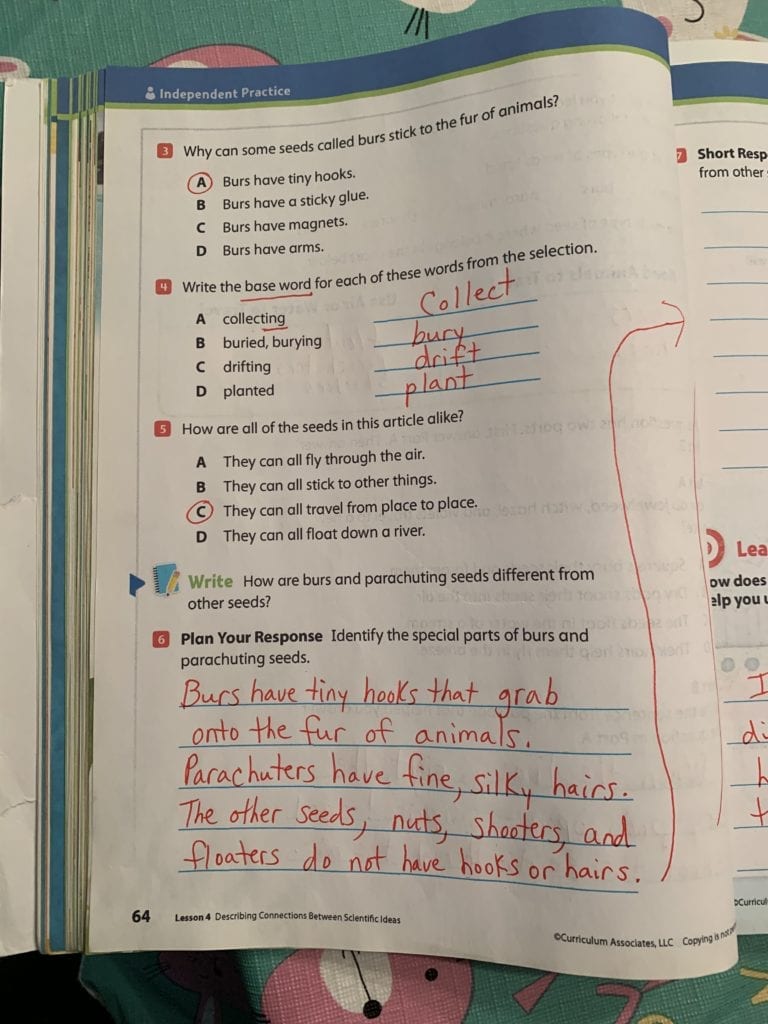 Independent Practice
3 Why can some seeds called burs stick to the fur of animals?
A Burs have tiny hooks.
B Burs have a sticky glue.
C Burs have magnets.
D Burs have arms.
4 Write the base word for each of these words from the selection.
A collecting Collect
B buried, burying bury
C drifting drift
D planted plant
5 How are all of the seeds in this article alike?
A They can all fly through the air.
B They can all stick to other things.
C They can all travel from place to place.
D They can all float down a river.
Write How are burs and parachuting seeds different from
other seeds?
6 Plan Your Response Identify the special parts of burs and
parachuting seeds.
Burs have tiny hooks that grab
onto the fur of animals.
Parachuters have fine, silky hairs.
The other seeds, nuts, shooters, and
floaters do not have hooks or hairs.
64 Lesson 4 Describing Connections Between Scientific Ideas
©Curriculum Associates, LLC Copying is
7 Short
from other